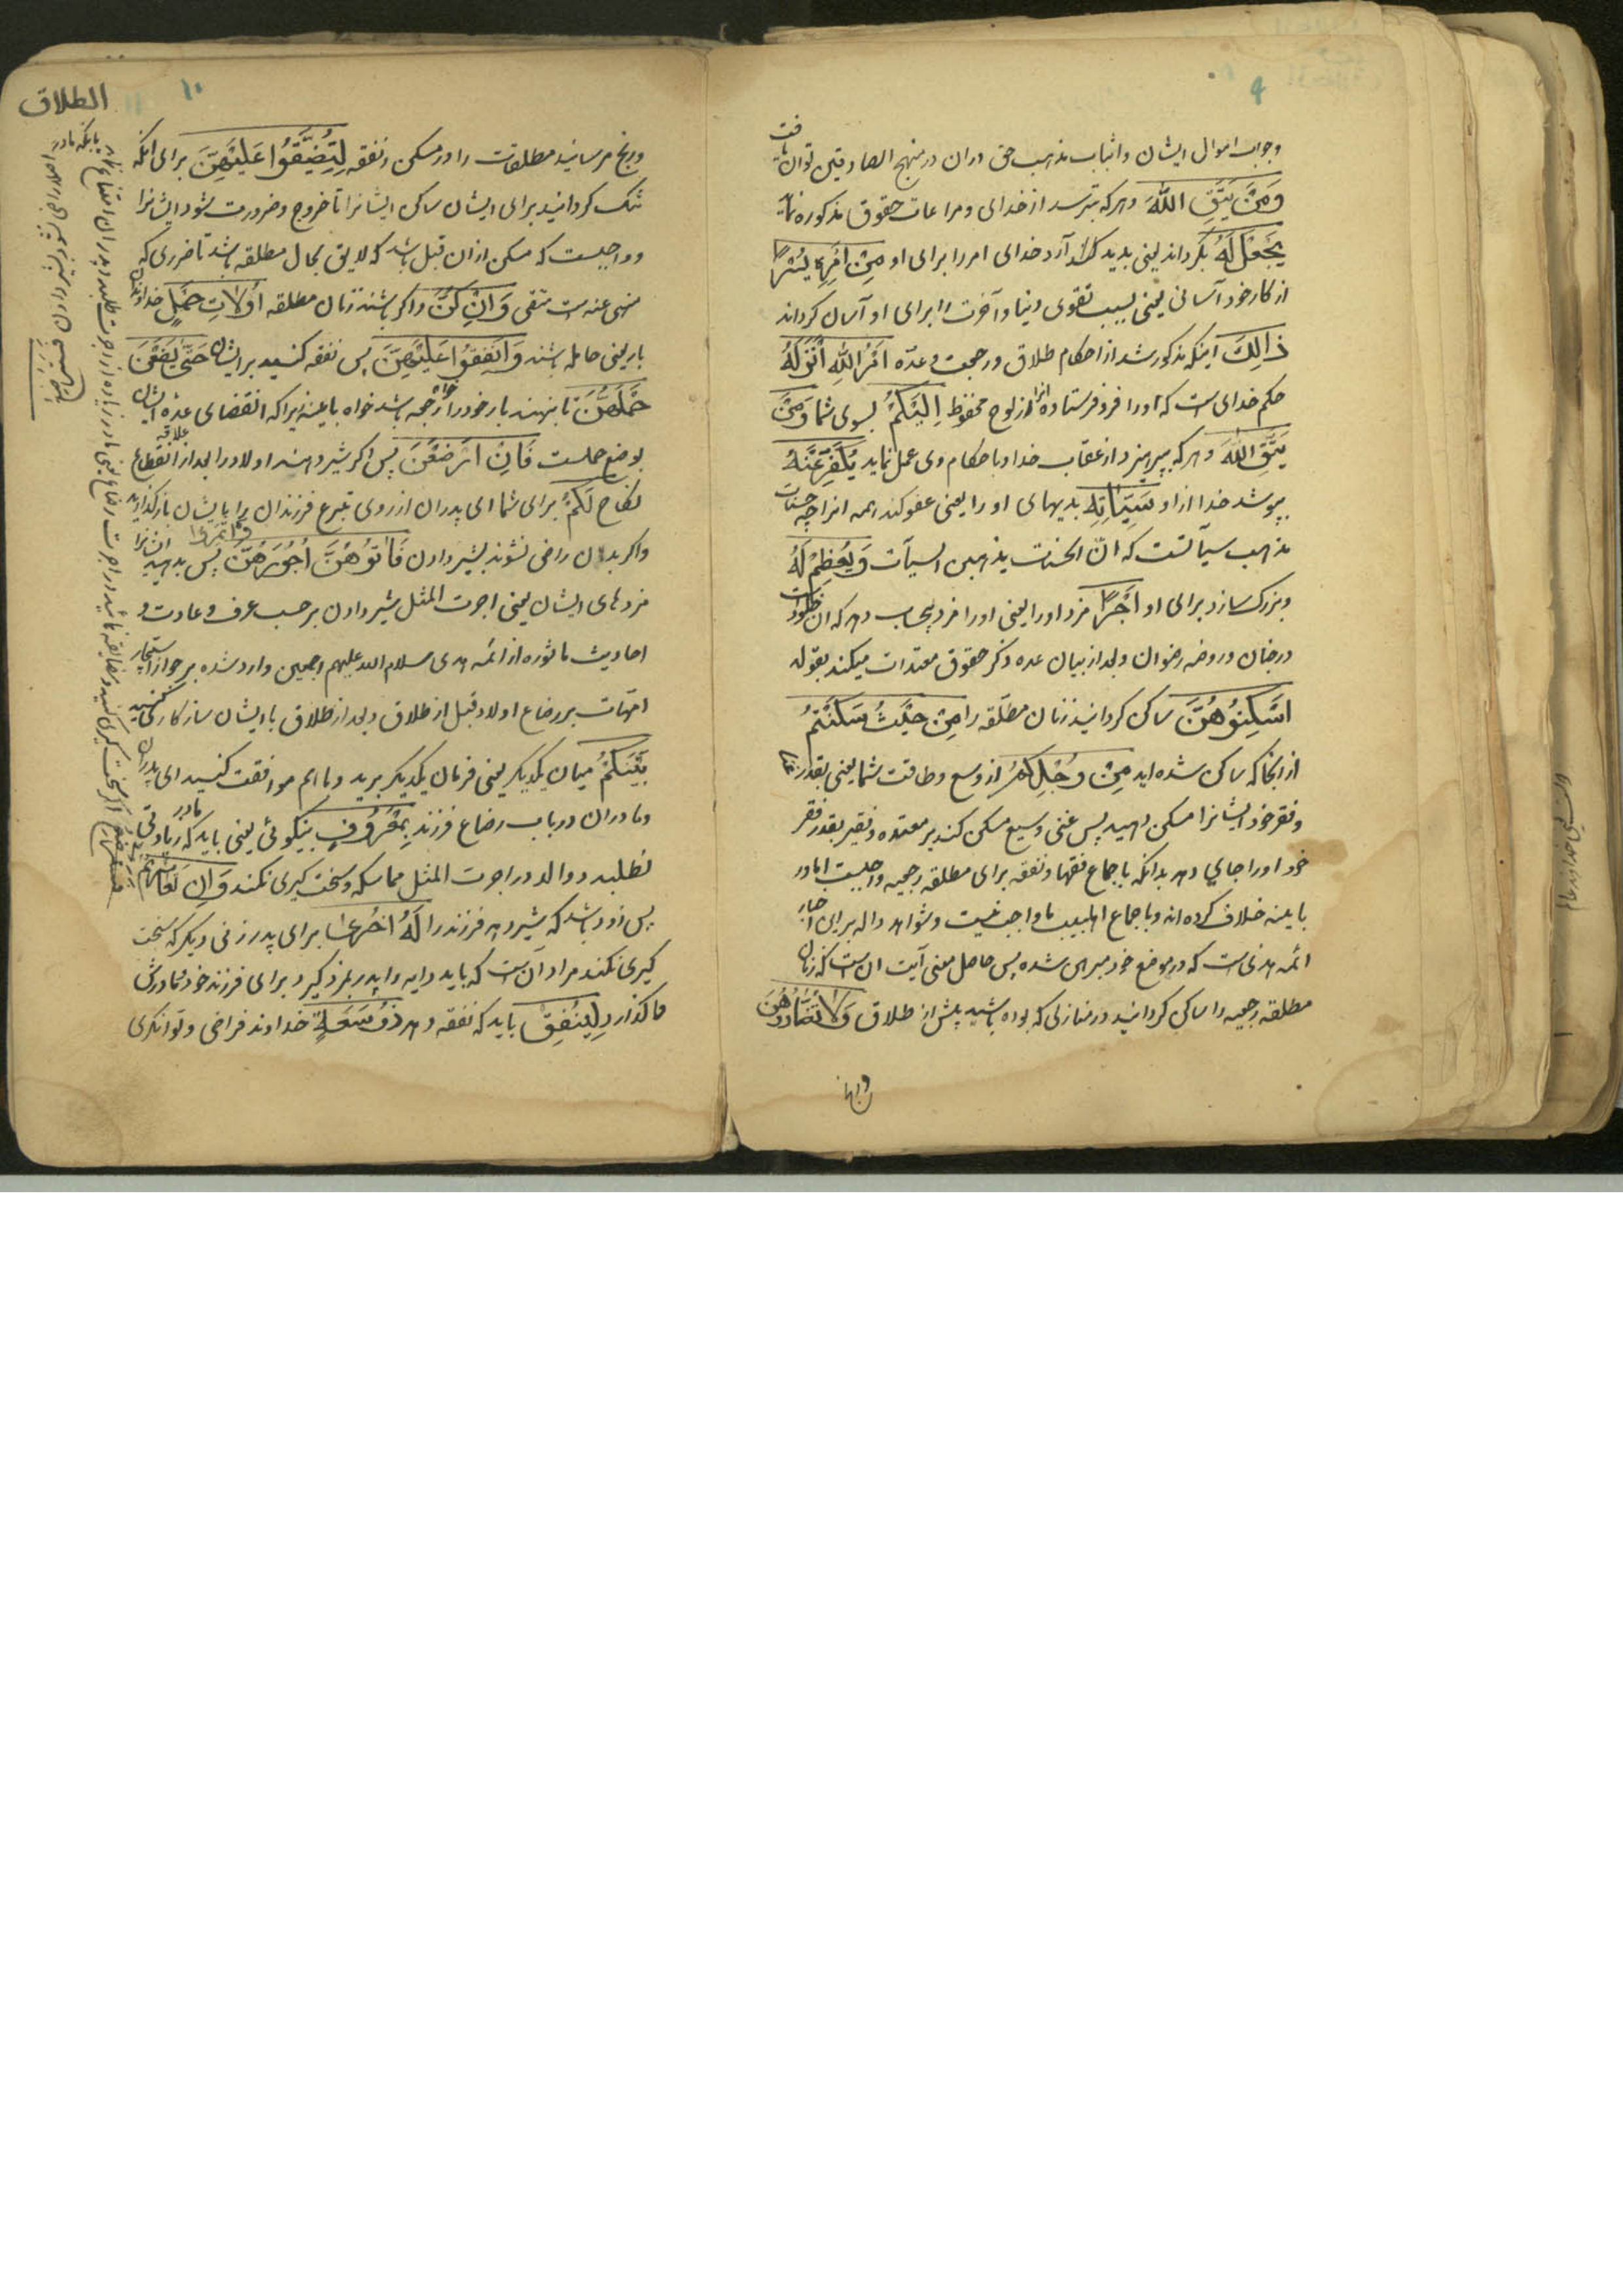 ۹
وجواب اموال ایشان واثبات مذهب حق دران در منهج الصادقین توان یافت
وَمَنْ یَتَّقِ اللّٰهَ وهرکه بترسد از خدای ومراعات حقوق مذکوره نماید
یَجْعَلْ لَهُ بگرداند یعنی پدید آرد خدای امر را برای او مِنْ اَمْرِهِ یُسْرًا
از کار خود آسانی یعنی بسبب تقوی دنیا وآخرت را برای او آسان گرداند
ذٰالِکَ اینکه مذکور شد از احکام طلاق ورجعت وعدّه اَمْرُ اللّٰهِ اَنْزَلَهُ
حکم خدای است که اورا فرو فرستاده از لوح محفوظ اِلَیْکُمْ بسوی شما وَمَنْ
یَتَّقِ اللّٰهَ وهرکه بپرهیزد از عقاب خدا وباحکام وی عمل نماید یُکَفِّرْ عَنْهُ
بپوشد خدا از او سَیِّئٰاتِهِ بدیهای اورا یعنی عفو کند همه انرا چه حسنات
مذهب سیآتست که انّ الحسنات یذهبن السیآت وَیُعْظِمْ لَهُ
وبزرک سازد برای او اَجْرًا مزد اورا یعنی اورا مزد بیحساب دهد که ان خلود است
در جنان وروضه رضوان وبعد از بیان عده ذکر حقوق معتدات میکند بقوله
اَسْکِنُوْهُنَّ ساکن گردانید زنان مطلّقه را مِنْ حَیْثُ سَکَنْتُمْ
از انجا که ساکن شده اید مِنْ وُجْدِکُمْ از وسع وطاقت شما یعنی بقدر غنا
وفقر خود ایشانرا مسکن دهید پس غنی وسیع مسکن کند بر معتده وفقیر بقدر فقر
خود اورا جای دهد بدانکه باجماع فقها ونفقه برای مطلقه رجعیه واجبست اما در
باینه خلاف کرده اند وباجماع اهلبیت ما واجب نیست وشواهد داله برای اخبار
ائمه هدی است که در موضع خود مبرهن شده پس حاصل معنی آیت ان است که زنان
مطلقه رجعیه را ساکن گردانید در منازلی که بوده باشید پیش از طلاق وَلَا تُضَارُّوْهُنَّ
۱۰
الطلاق
ورنج مرسانید مطلقات را در مسکن ونفقه لِتُضَیِّقُوا عَلَیْهِنَّ برای انکه
تنک گردانید برای ایشان ساکن ایشانرا تا خروج وضرورت شود ایشانرا
وواجبست که مسکن از ان قبل باشد که لایق بحال مطلقه باشد تا ضرری که
منهی عنه است منتفی وَاِنْ کُنَّ واکر باشند زنان مطلقه اُوْلَاتِ حَمْلٍ خداوندان
بار یعنی حامله باشند وَاَنْفِقُوا عَلَیْهِنَّ پس نفقه کنید برایشان حَتّٰی یَضَعْنَ
حَمْلَهُنَّ تا بنهند بار خودرا خواه رجعیه باشد خواه باینه زیرا که انقضای عدّه ایشان
بوضع حملست فَاِنْ اَرْضَعْنَ پس اکر شیر دهند اولاد را بعد از انقطاع علاقه
نکاح لَکُمْ برای شما ای پدران از روی تبرع فرزندان را بایشان بازگذارید
واکر بدان راضی نشوند بشیر دادن فَاٰتُوْهُنَّ اُجُوْرَهُنَّ پس بدهید ایشانرا
مزدهای ایشان یعنی اجرت المثل شیر دادن بر حسب عرف وعادت و
احادیث ماثوره از ائمه هدی سلام الله علیهم اجمعین وارد شده بر جواز استیجار
امّهات بر رضاع اولاد قبل از طلاق وبعد از طلاق با ایشان سازکاری کنید
بَیْنَکُمْ میان یکدیکر یعنی فرمان یکدیکر برید وباهم موافقت کنید ای پدران
ومادران در باب رضاع فرزند بِمَعْرُوْفٍ بنیکوئی یعنی باید که مادر زیادتی
نطلبد ووالد در اجرت المثل مماسکه وسخت گیری نکند وَاِنْ تَعَاسَرْتُمْ
پس زود باشد که شیر دهد فرزند را لَهُ اُخْرٰی برای پدر زنی دیکر که سخت
گیری نکند مراد آن است که باید دایه را پدر بمزد گیرد برای فرزند خود ومادرش
واگذارد لِیُنْفِقْ باید که نفقه دهد ذُوْ سَعَةٍ خداوند فراخی وتوانکری